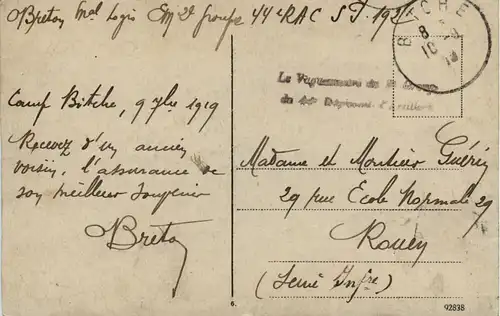 Breton Mal Logis Em 2e groupe 44e RAC S.P.
BITCHE
8
10
19
Le Vaguemestre du 2e Groupe
du 44e Régiment d'Artillerie
Camp Bitche, 9 7bre 1919
Recevez d'un ancien
voisin, l'assurance de
son meilleur souvenir
Breton
Madame et Monsieur Guérin
29 rue Ecole Normale 29
Rouen
(Seine Infre)
6.
92838